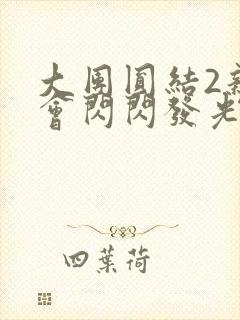 大團圓結2新
會閃閃發光
四葉荷